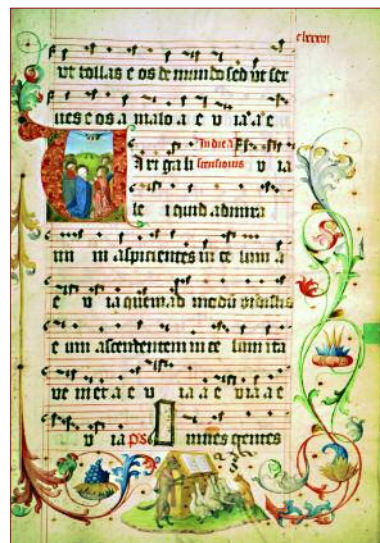 clxxxvi
ut tollas e os de mundo sed ut ser
ues e os a malo a e v ia a e
In die a
iri gali scensionis v ia
le quid admira
mi ni aspicientes in ce lum a
e v ia quem ad modū vidistis
e um ascendentem in ce lum ita
ve ni et a e v ia a e v ia a e
v ia ps Omnes gentes